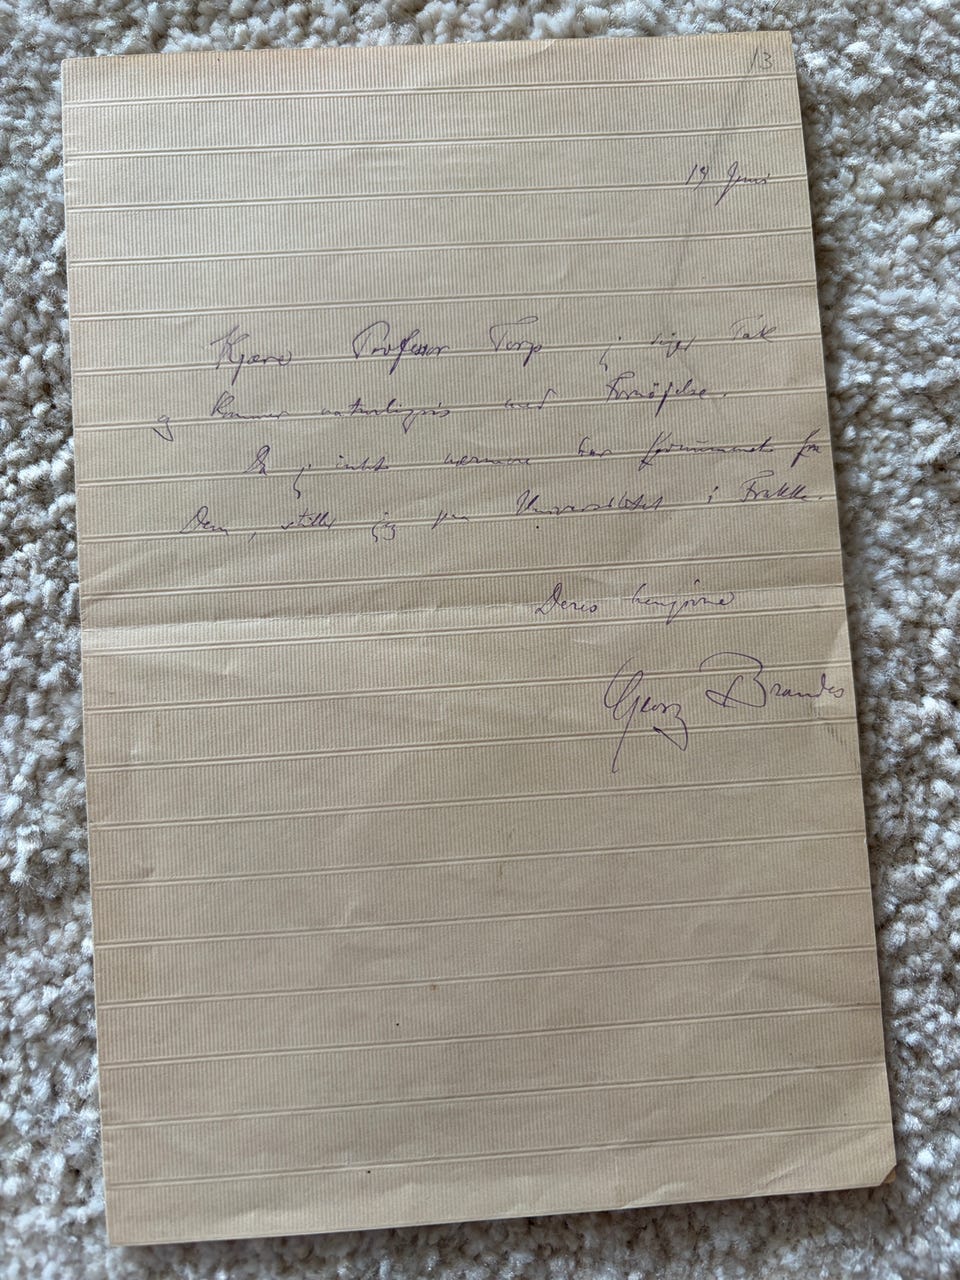 13
19 Juni
Kjære Professor Torp j siger Tak
og kommer naturligvis med Fornöjelse.
Da j intet nærmere har fra
Dem, stiller jeg paa Universitetet i Frakke.
Deres hengivne
Georg Brandes